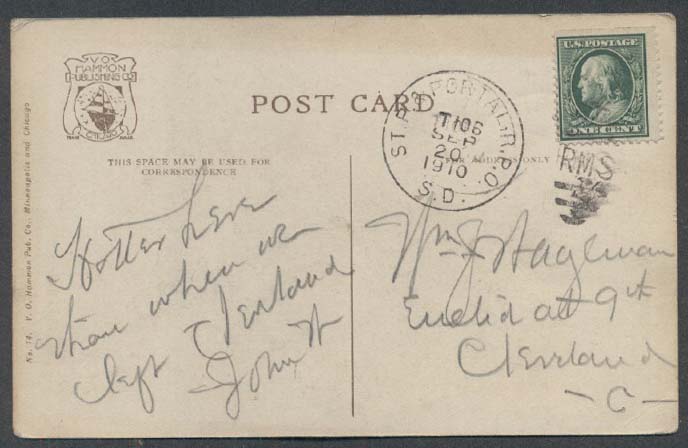 V.O.
HAMMON
PUBLISHING CO
CHICAGO
TRADE MARK
POST CARD
THIS SPACE MAY BE USED FOR
CORRESPONDENCE
ADDRESS ONLY
No. 74. V. O. Hammon Pub. Co., Minneapolis and Chicago
U.S. POSTAGE
ONE CENT
ST. P. & PORTAL R.P.O.
T.106
SEP
20
1910
S.D.
RMS
Hotter here
than when we
left Cleveland
John H
Wm J Hageman
Euclid at 9th
Cleveland
- O -